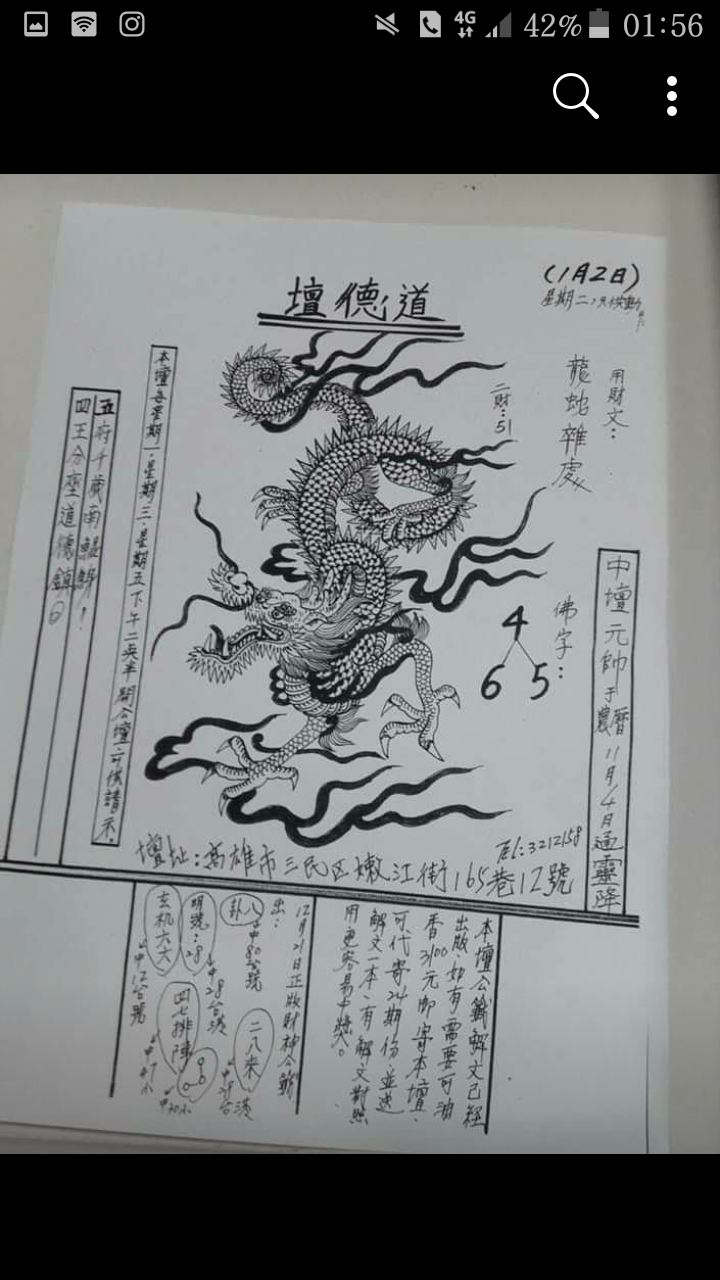 4G 42% 01:56
(1月2日)
星期二
道德壇
用財文：
龍蛇雜處
二財：51
佛字：
4
6 5
中壇元帥于農曆11月4日通靈降
本壇每星期一.星期三.星期五下午二點半開公壇.可供請示。
五府千歲南鯤鯓！
四王分壇道德鎮。
Tel:3212158
壇址：高雄市三民区嫩江街165巷12號
本壇公籤解文已經
出版.如有需要可油
香3100元即寄本壇.
可代寄24期份.並送
解文一本.有解文對照
用更容易中獎。
12月21日正版財神公籤
出：
八卦
中80台號
二八來
明號：28
中28台港
四七排陣
中47小
玄机六六
中12台號